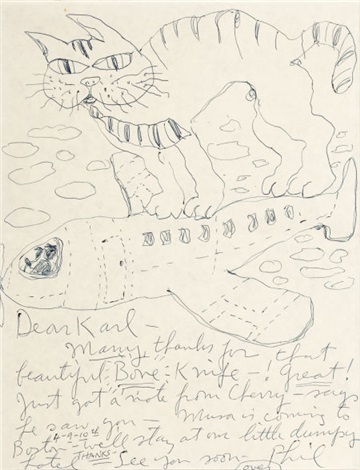 Dear Karl —
Many thanks for that
beautiful Bone-Knife —! Great!
Just got a note from Cherry — says
he saw you — Musa is coming to
Boston — We'll stay at our little dumpy
hotel — THANKS — See you soon — Phil
(over)